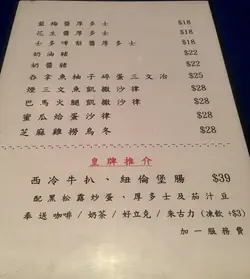 藍梅醬厚多士 $18
花生醬厚多士 $18
士多啤梨醬厚多士 $18
奶油豬 $22
奶醬豬 $22
吞拿魚柚子碎蛋三文治 $25
煙三文魚凱撒沙律 $28
巴馬火腿凱撒沙律 $28
蜜瓜蛤蛋沙律 $28
芝麻雞撈烏冬 $28
皇牌推介
西冷牛扒、紐倫堡腸 $39
配黑松露炒蛋、厚多士及茄汁豆
奉送咖啡/奶茶/好立克/朱古力(凍飲+$3)
加一服務費